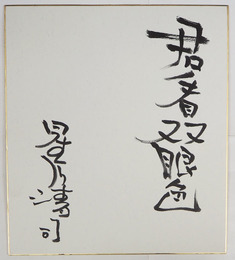 君看双眼色
星乃清司